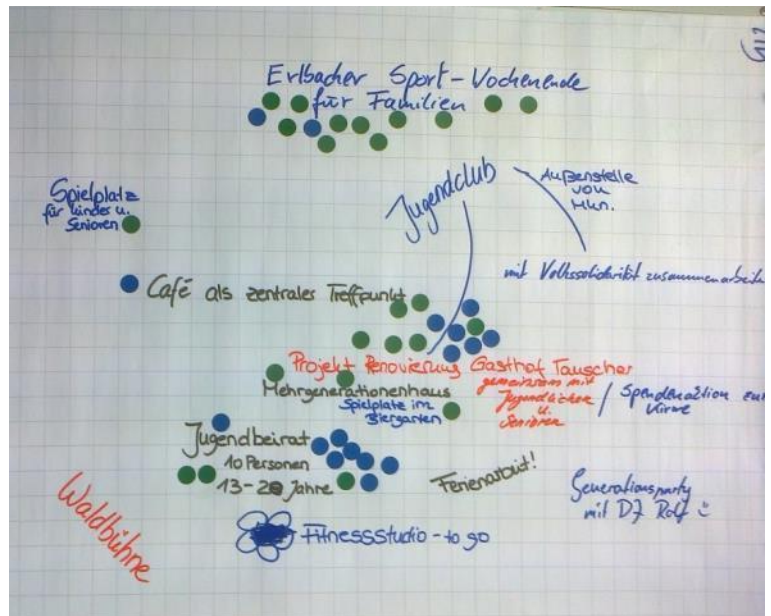 Erlbacher Sport-Wochenende
für Familien
Jugendclub
Außenstelle
von
Mkn.
mit Volkssolidarität zusammenarbeite
Spielplatz
für Kinder u.
Senioren
Café als zentraler Treffpunkt
Projekt Renovierung Gasthof Tauscher
gemeinsam mit
Jugendlichen
u.
Senioren
/ Spendenaktion zur
Kirwe
Mehrgenerationenhaus
Spielplatz im
Biergarten
Jugendbeirat
10 Personen
13-20 Jahre
Ferienarbeit!
Generationsparty
mit DJ Rolf
Waldbühne
FitnessStudio - to go